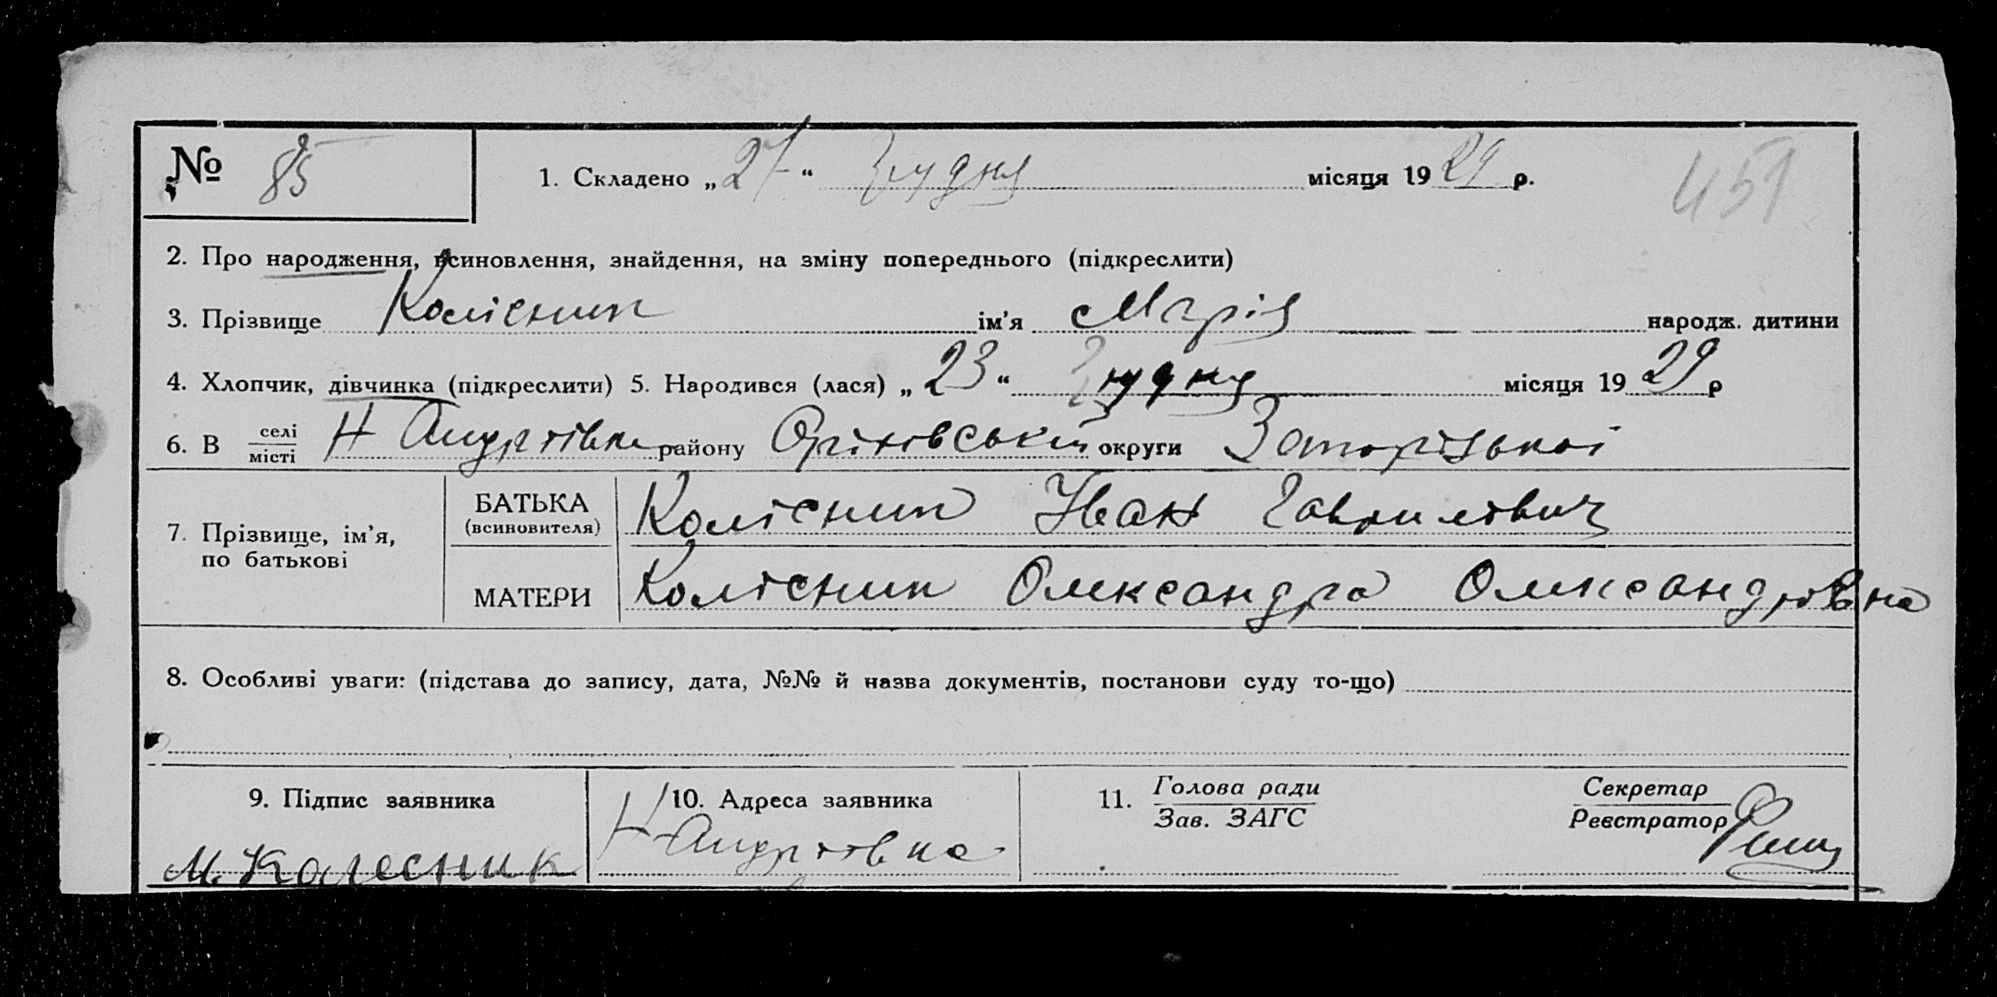 № 85 1. Складено „27“ грудня місяця 1929 р. 451
2. Про народження, всиновлення, знайдення, на зміну попереднього (підкреслити)
3. Прізвище Колісник ім'я Марія народж. дитини
4. Хлопчик, дівчинка (підкреслити) 5. Народився (лася) „23“ грудня місяця 1929 р
6. В селі місті Н Андріївка району Оріхівський округи Запорізької
7. Прізвище, ім'я, по батькові
БАТЬКА (всиновителя) Колісник Іван Гаврилович
МАТЕРИ Колісник Олександра Олександрівна
8. Особливі уваги: (підстава до запису, дата, №№ й назва документів, постанови суду то-що)
9. Підпис заявника 10. Адреса заявника 11. Голова ради Секретар
Зав. ЗАГС Реєстратор
М. Колесник Н-Андріівка